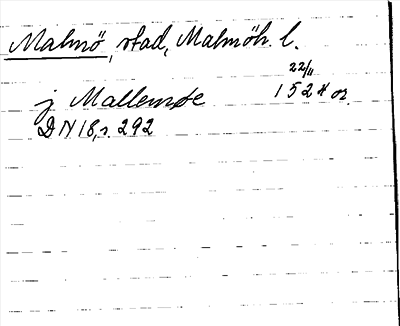 Malmö, stad, Malmöh. l.
22/11
j Mallemøe 1524 or.
DN 18, s. 292